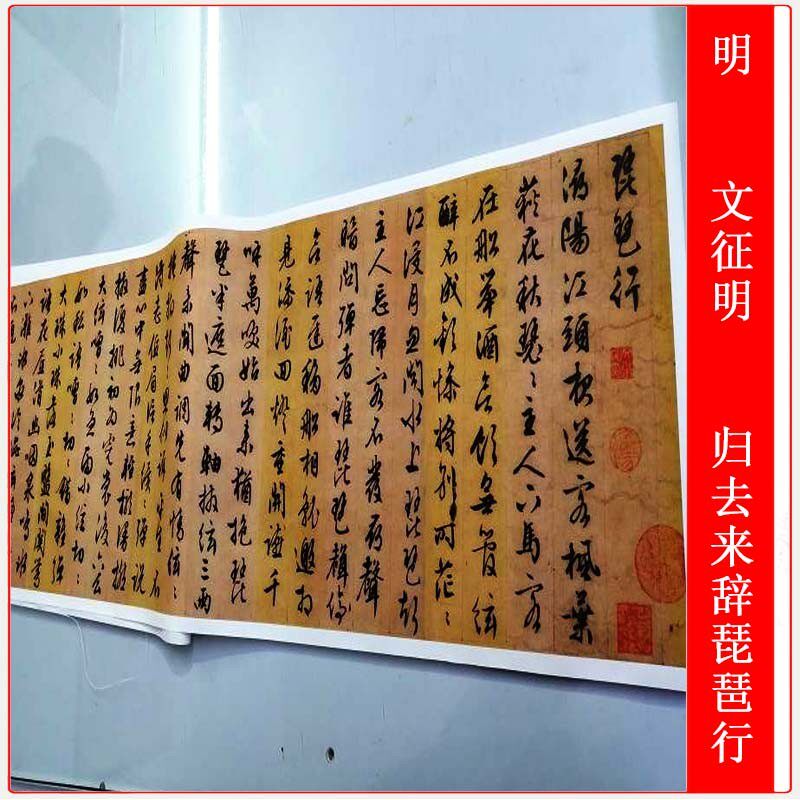 明
文征明
归去来辞琵琶行
琵琶行
潯陽江頭夜送客楓葉
荻花秋瑟〻主人下馬客
在船舉酒欲飲無管絃
醉不成歡慘將別〻時茫〻
江浸月忽聞水上琵琶聲
主人忘歸客不發尋聲
暗問彈者誰琵琶聲停
欲語遲移船相就邀相
見添酒回燈重開讌千
呼萬喚始出來猶抱琵
琶半遮面轉軸撥絃三兩
聲未聞曲調先有情絃〻
掩抑聲〻思似訴平生不
得志低眉信手續〻彈說
盡心中無限意輕攏慢撚
撥復挑初為霓裳後六么
大絃嘈〻如急雨小絃切〻
如私語嘈〻切〻錯雜彈
大珠小珠落玉盤間關鶯
語花底滑幽咽泉流